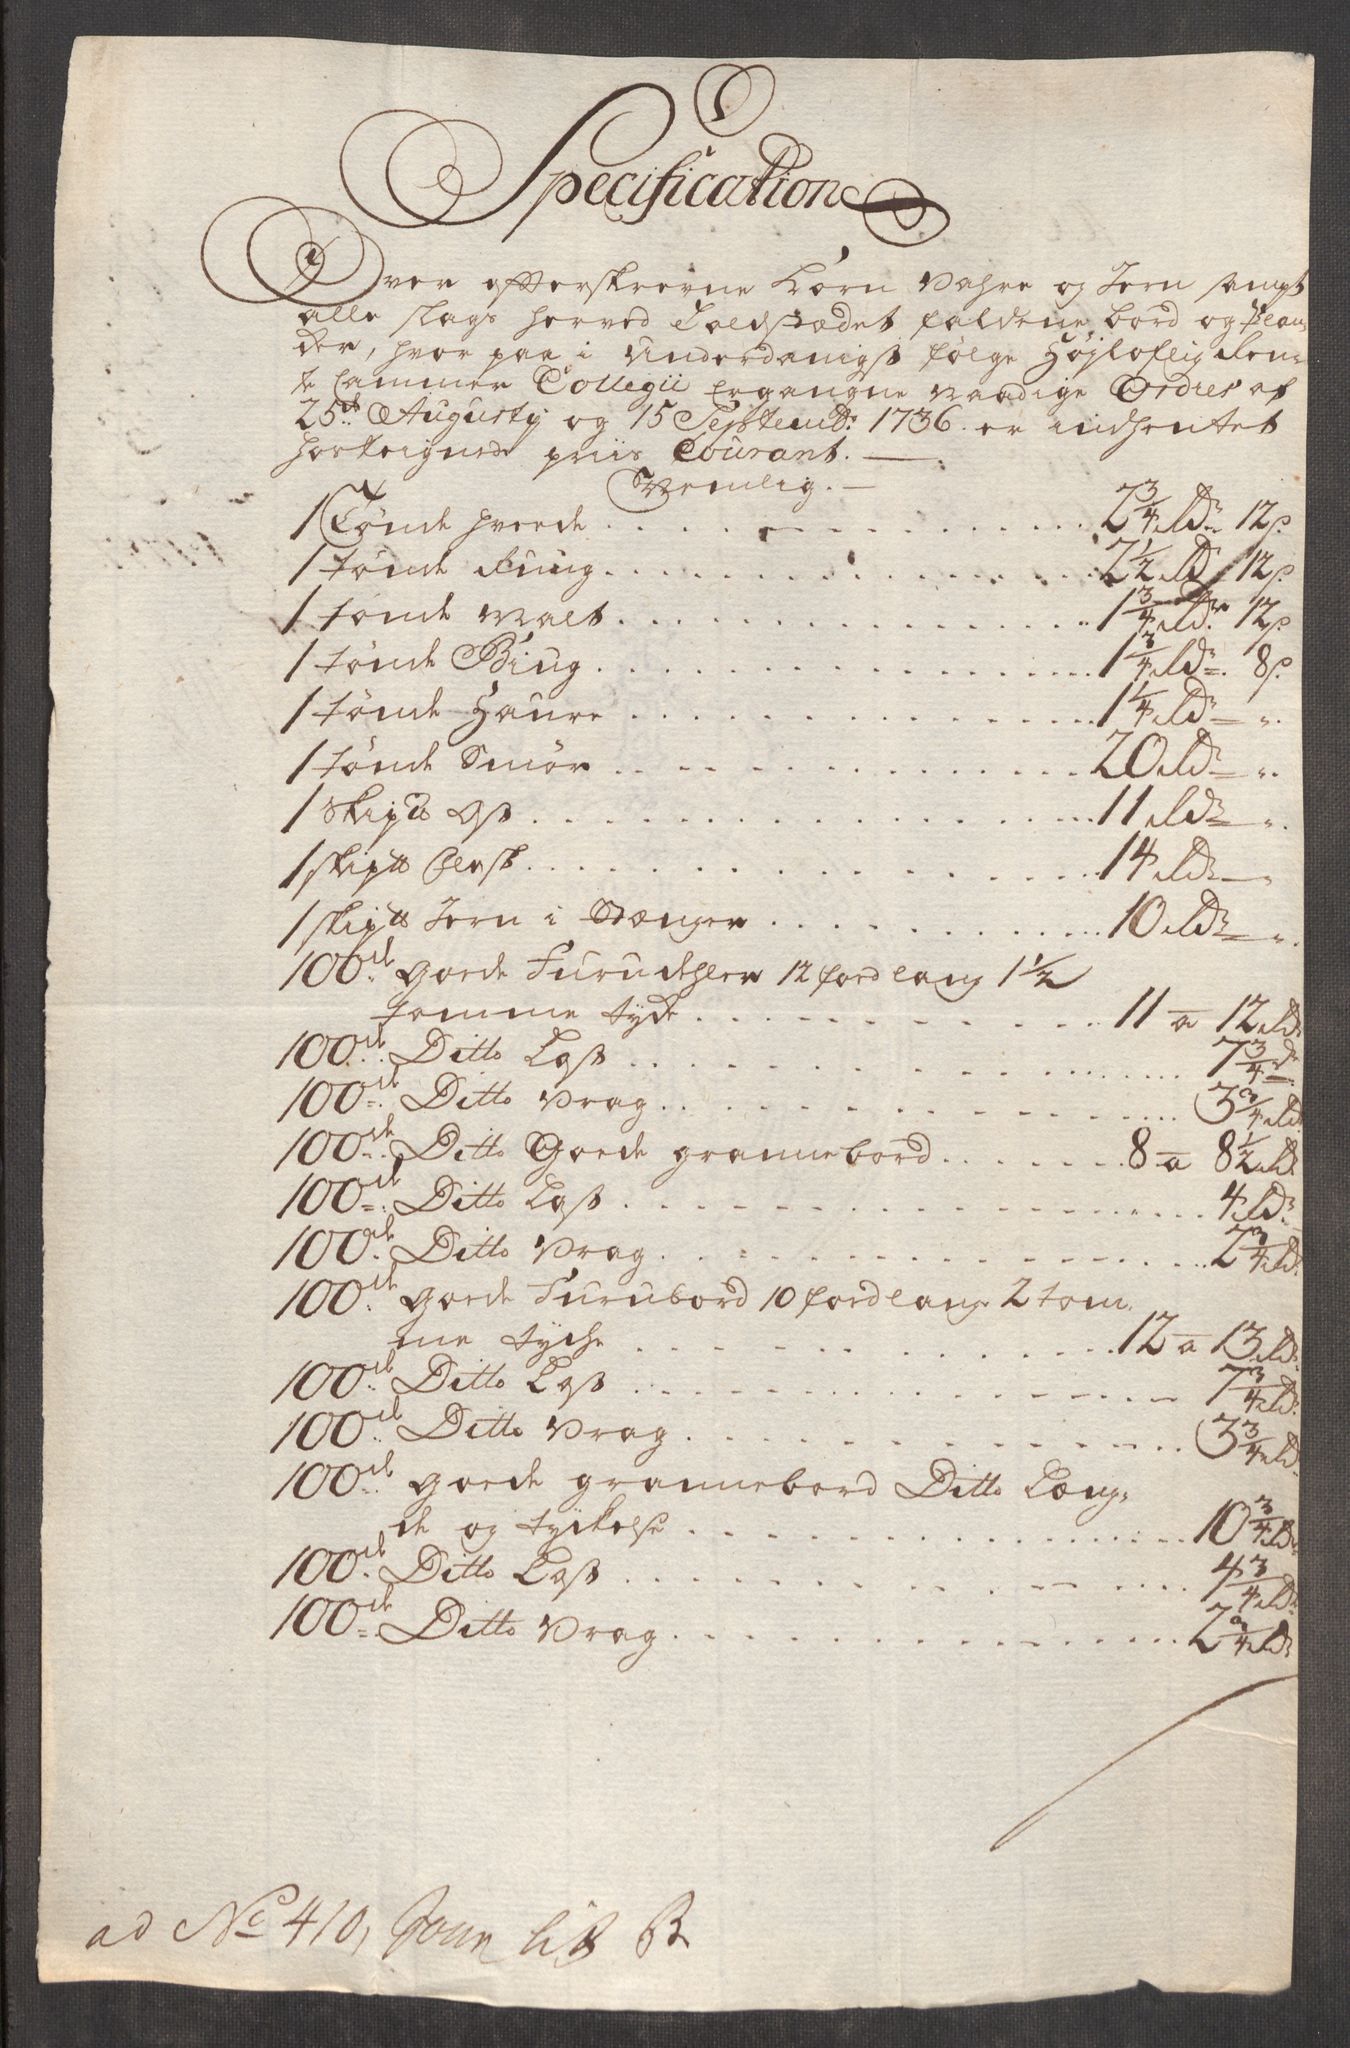 Specification
Over efterskrevne Korn Vahre og Jern sampt
alle slags herved Toldstædet faldene bord og Plan
der, hvor paa i Underdanigst følge Høyloflig Ren
te Cammer Collegii Ergangne naadige Ordres af
25de Augustij og 15 Septembr: 1736. er indhentet
hosteignede priis Courant.
Nemlig.
1 Tønde hvede 2 3/4 Rdr 12 s.
1 tønde Rug 2 1/2 Rd 12 s.
1 tønde Malt 1 3/4 Rdr 12 s.
1 tønde Biug 1 3/4 Rdr. 8 s.
1 tønde Haure 1 1/4 Rdr „.
1 tønde Smør 20 Rdr „.
1 Skip℔ Ost 11 Rdr „.
1 skip℔ flesk 14 Rdr „
1 skip℔ Jern i Stænger 10 Rdr „.
100de goede Furu dehler 12 foed lang 1 1/2
tomme tyke 11 a 12 Rdr
100de Ditto Last 7 3/4 Rdr
100de Ditto Vrag 3 3/4 Rd.
100de Ditto Goede grannebord 8 a 8 1/2 Rd.
100de Ditto Last 4 Rdr.
100de Ditto Vrag 2 3/4 Rd.
100de goede Furubord 10 foed lang 2 tom
me tyche 12 a 13 Rdr
100de Ditto Last 7 3/4 Rd.
100de Ditto Vrag 3 3/4 Rd.
100de goede grannebord Ditto Læng,
de og tyckelse 10 3/4 Rdr
100de Ditto Last 4 3/4 Rdr
100de Ditto Vrag 2 3/4 Rdr
ad No 410, Jour lit B